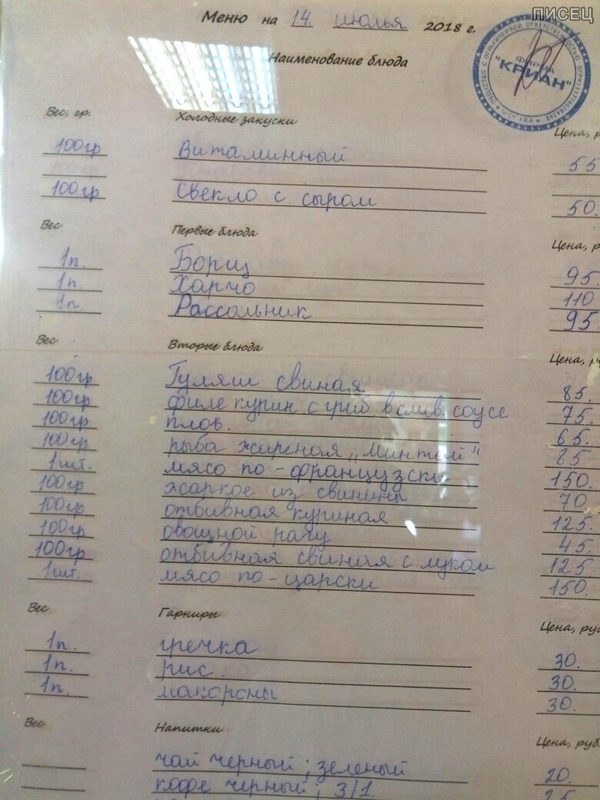 ПИСЕЦ
Меню на 14 июлья 2018 г.
Наименование блюда
ФИРМА
"КРИАН"
Вес, гр. Холодные закуски Цена, р
100гр Витаминный 55
100гр Свекло с сыром 50.
Вес Первые блюда Цена, р
1п. Борщ 95.
1п. Харчо 110
1п. Рассольник 95.
Вес Вторые блюда Цена, ру
100гр Гуляш свиная 85.
100гр филе курин с гриб в слив. соусе 75.
100гр плов. 65.
100гр рыба жареная „Минтай" 85
1шт. мясо по-французски 150.
100гр жаркое из свинины 70
100гр отбивная куриная 125.
100гр овощной рагу 45.
100гр отбивная свиная с луком 125
1шт.. мясо по-царски 150.
Вес Гарниры Цена, руб
1п. гречка 30.
1п. рис. 30.
1п. макороны 30.
Вес Напитки Цена, руб.
чай черный; зеленый 20.
кофе черный; 3/1. 25.